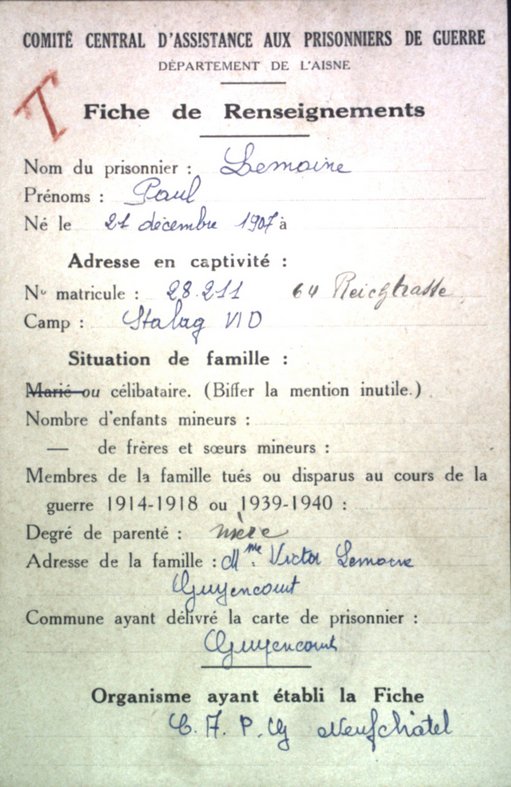 COMITÉ CENTRAL D'ASSISTANCE AUX PRISONNIERS DE GUERRE
DÉPARTEMENT DE L'AISNE
T
Fiche de Renseignements
Nom du prisonnier : Lemoine
Prénoms : Paul
Né le 21 décembre 1907 à
Adresse en captivité :
No matricule : 28.211 64 Reichstrasse
Camp : Stalag VI D
Situation de famille :
Marié ou célibataire. (Biffer la mention inutile.)
Nombre d'enfants mineurs :
— de frères et sœurs mineurs :
Membres de la famille tués ou disparus au cours de la
guerre 1914-1918 ou 1939-1940 :
Degré de parenté : mère
Adresse de la famille : Mme Victor Lemoine
Guyencourt
Commune ayant délivré la carte de prisonnier :
Guyencourt
Organisme ayant établi la Fiche
C. F. P. G Neufchâtel